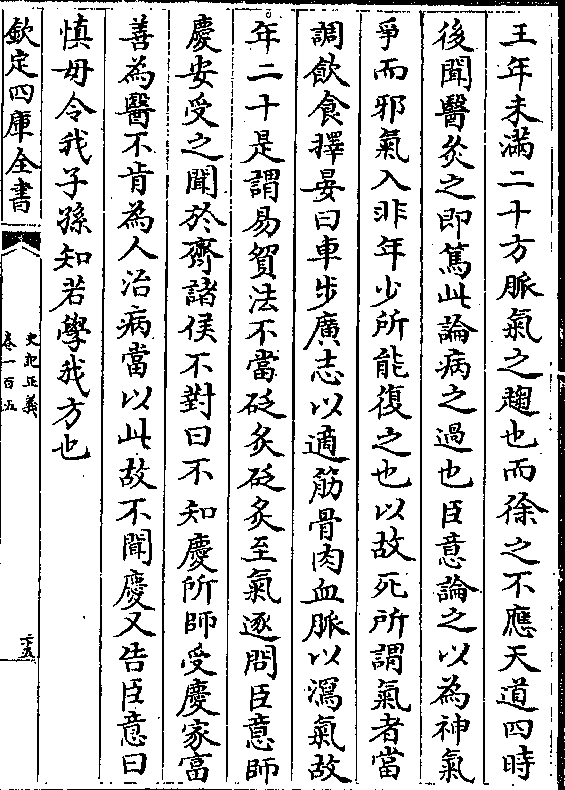 王年未滿二十方脈氣之趨也而徐之不應天道四時
後聞醫灸之即篤此論病之過也臣意論之以為神氣
爭而邪氣入非年少所能復之也以故死所謂氣者當
調飲食擇晏日車步廣志以適筋骨肉血脈以瀉氣故
年二十是謂易貿法不當砭灸砭灸至氣逐問臣意師
慶安受之聞於齊諸侯不對曰不知慶所師受慶家富
善為醫不肯為人治病當以此故不聞慶又告臣意曰
慎毋令我子孫知若學我方也
欽定四庫全書
史記正義
卷一百五
二十五